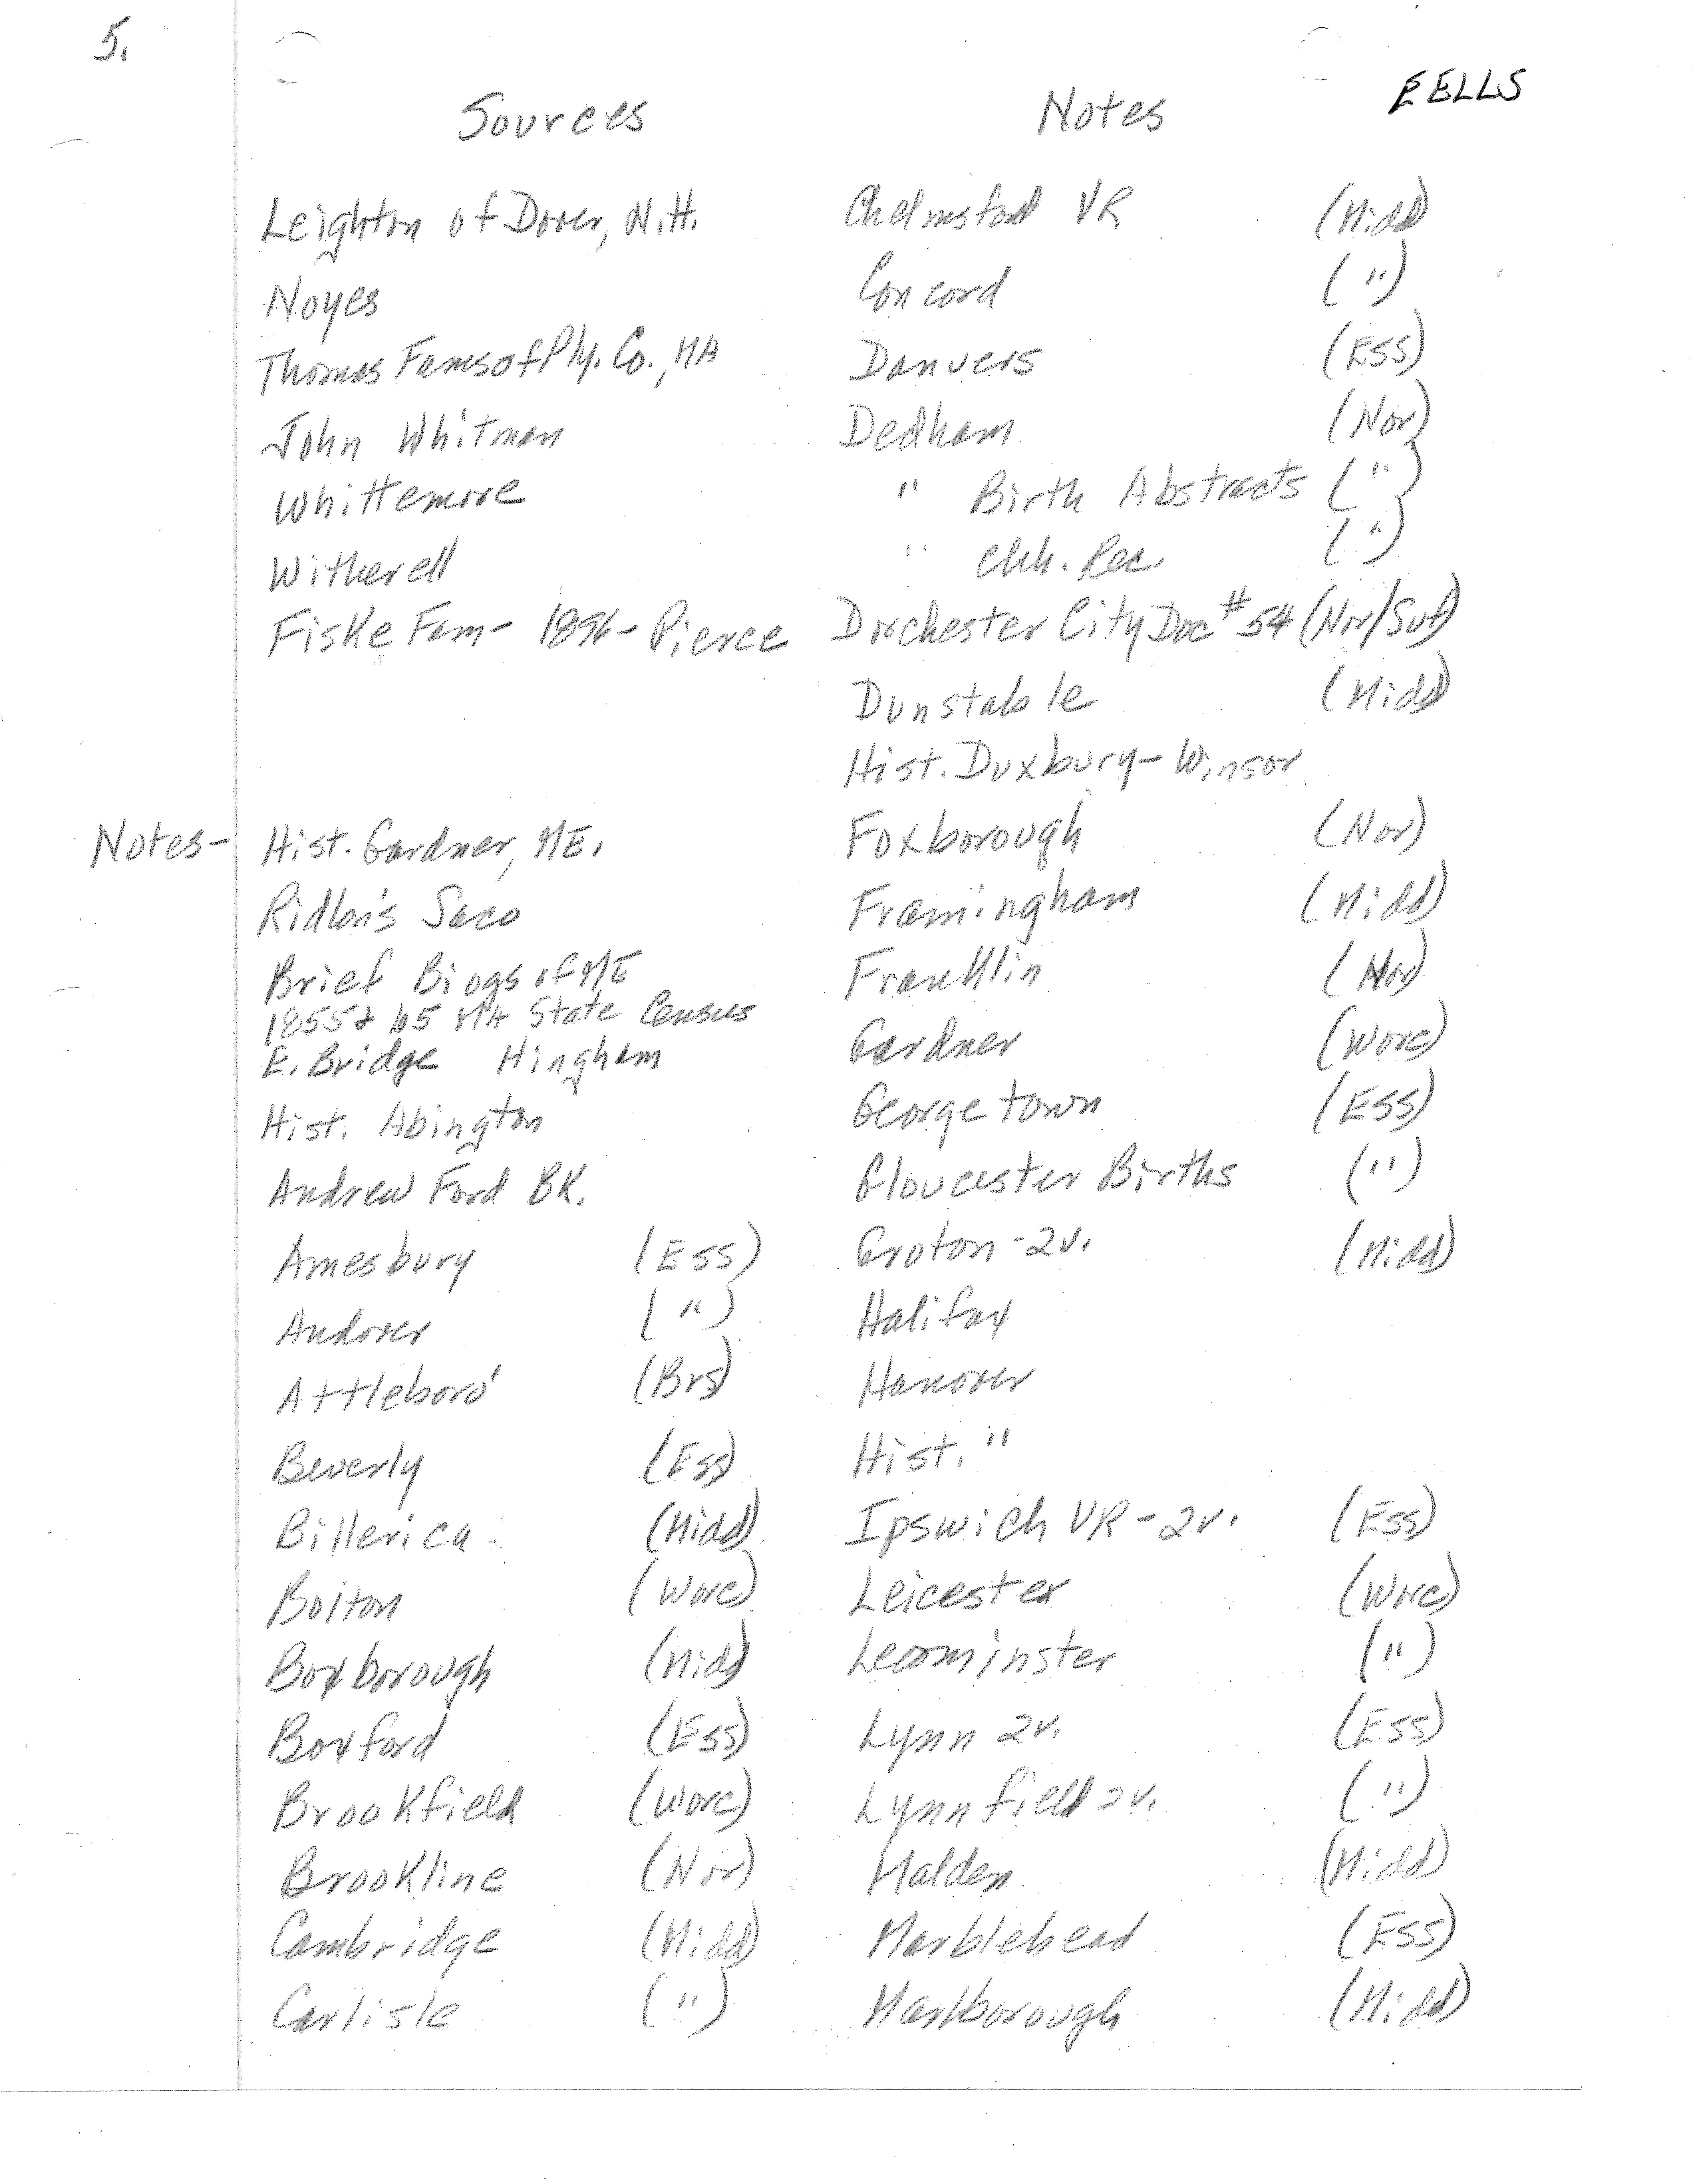 5.
EELLS
Sources
Leighton of Dover, N.H.
Noyes
Thomas Fams of Ply. Co., MA
John Whitman
Whittemore
Witherell
Fiske Fam - 1896 - Pierce
Notes - Hist. Gardner, ME.
Ridlon's Saco
Brief Biogs of ME
1855 & 65 MA State Census
E. Bridge Hingham
Hist. Abington
Andrew Ford BK.
Amesbury (Ess)
Andover (")
Attleboro' (Brs)
Beverly (Ess)
Billerica (Midd)
Bolton (Worc)
Boxborough (Midd)
Boxford (Ess)
Brookfield (Worc)
Brookline (Nor)
Cambridge (Midd)
Carlisle (")
Notes
Chelmsford VR (Midd)
Concord (")
Danvers (Ess)
Dedham (Nor)
" Birth Abstracts (")
" Chh. Rec. (")
Dorchester City Doc # 54 (Nor/Suf)
Dunstable (Midd)
Hist. Duxbury - Winsor
Foxborough (Nor)
Framingham (Midd)
Franklin (Nor)
Gardner (Worc)
Georgetown (Ess)
Gloucester Births (")
Groton - 2v. (Midd)
Halifax
Hanover
Hist. "
Ipswich VR - 2v. (Ess)
Leicester (Worc)
Leominster (")
Lynn 2v. (Ess)
Lynnfield 2v. (")
Malden (Midd)
Marblehead (Ess)
Marlborough (Midd)